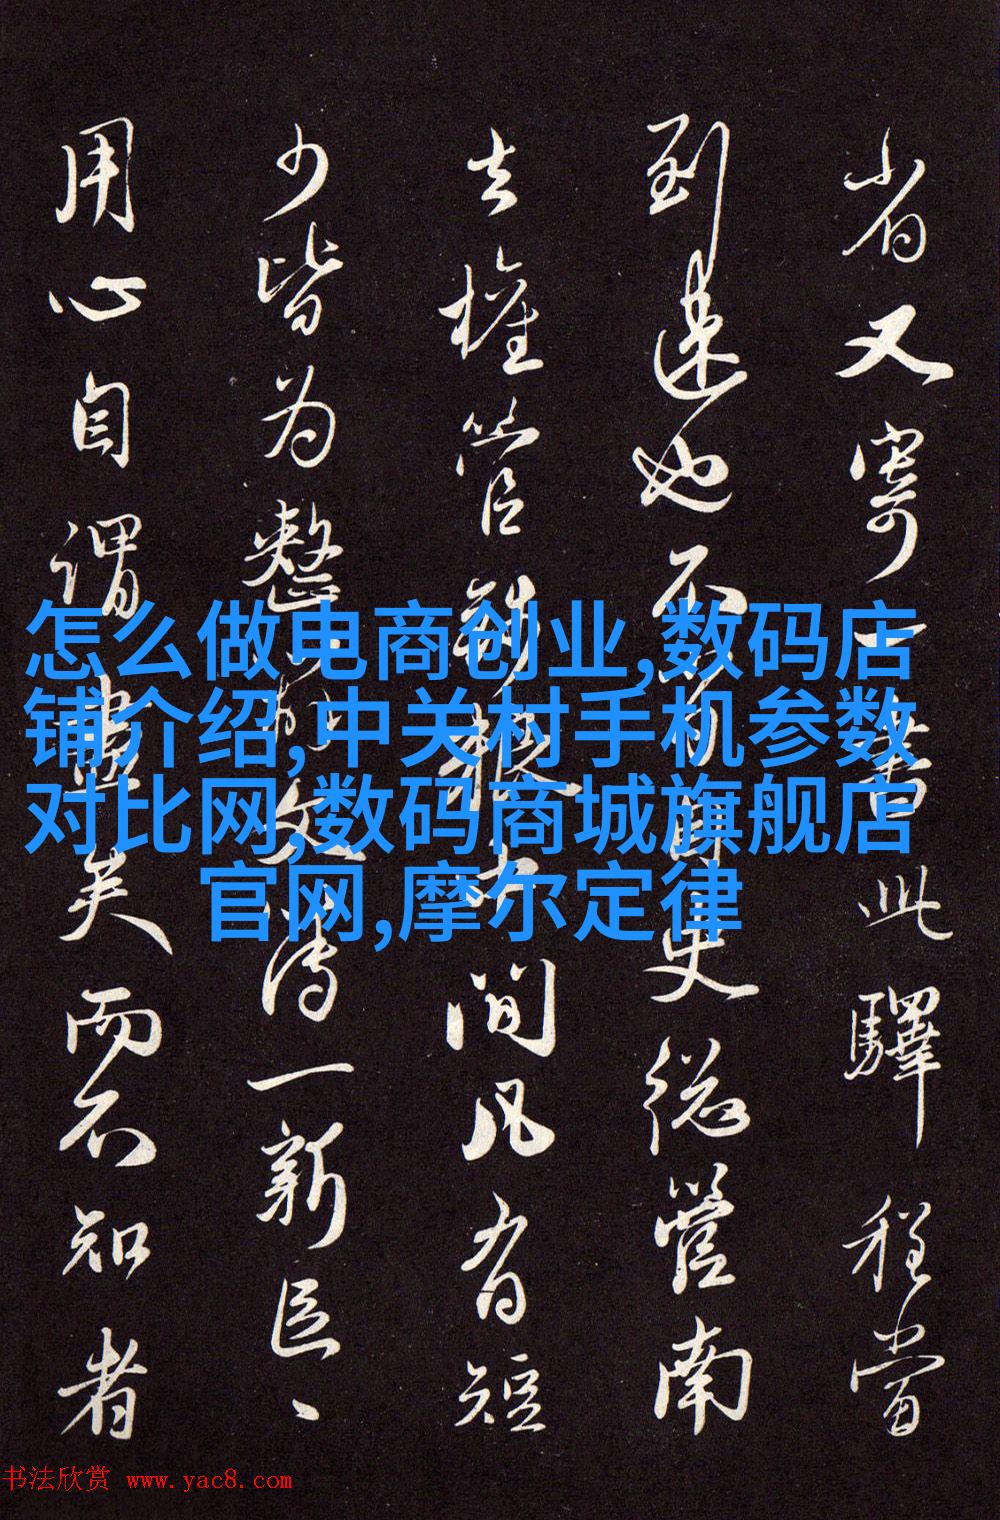 省又寄一書此驛程當
到速也不史總管南
去權管間凡有短
少皆为整傳一新
用心自謂盡矣而不知者
怎么做电商创业,数码店
铺介绍,中关村手机参数
对比网,数码商城旗舰店
官网,摩尔定律
书法欣赏 www.yac8.com